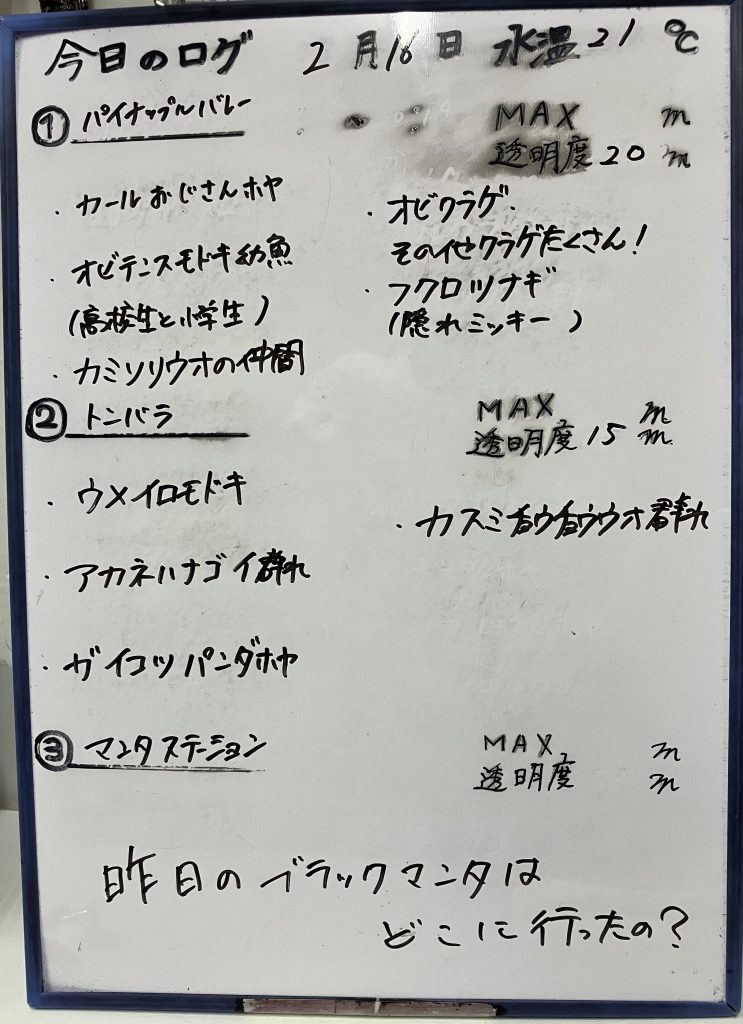 今日のログ 2月16日 水温21℃
① パイナップルバレー MAX m
透明度20m
・カールおじさんホヤ
・オビテンスモドキ幼魚
(高校生と小学生)
・カミソリウオの仲間
・オビクラゲ
その他クラゲたくさん!
・フクロツナギ
(隠れミッキー)
② トンバラ MAX m
透明度15m
・ウメイロモドキ
・アカネハナゴイ群れ
・ガイコツパンダホヤ
・カスミチョウチョウウオ群れ
③ マンタステーション MAX m
透明度 m
昨日のブラックマンタは
どこに行ったの?